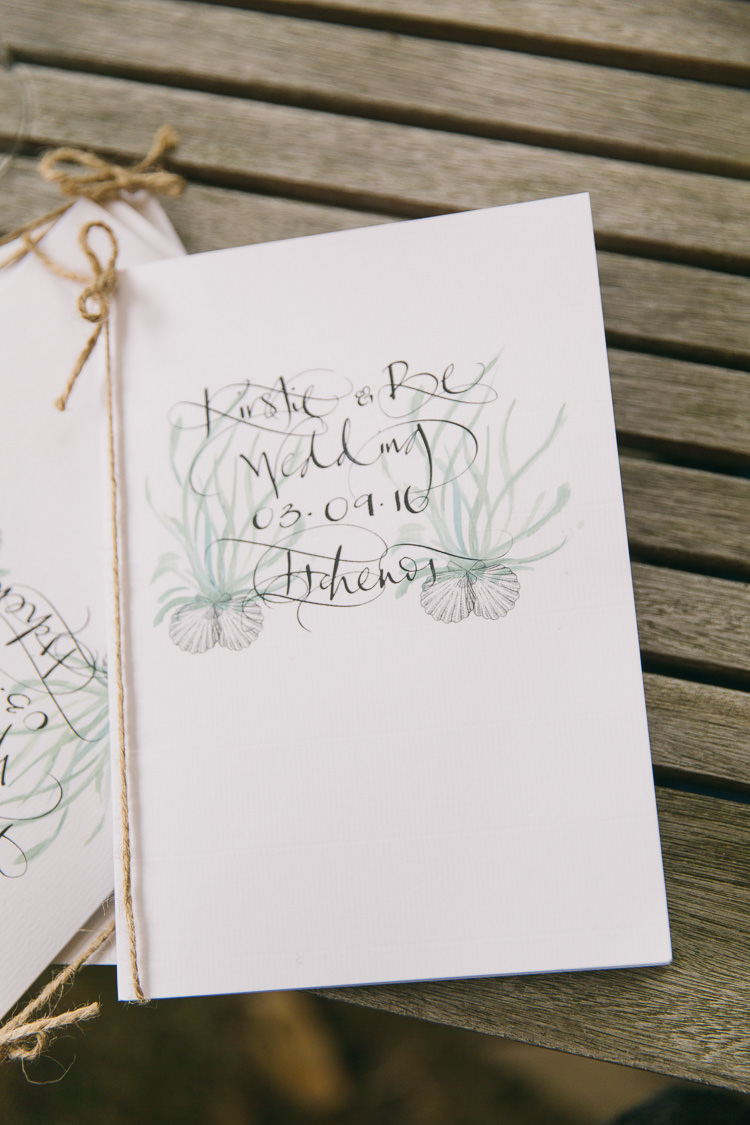 Kirstie & Be
Wedding
03.09.16
Itchenor